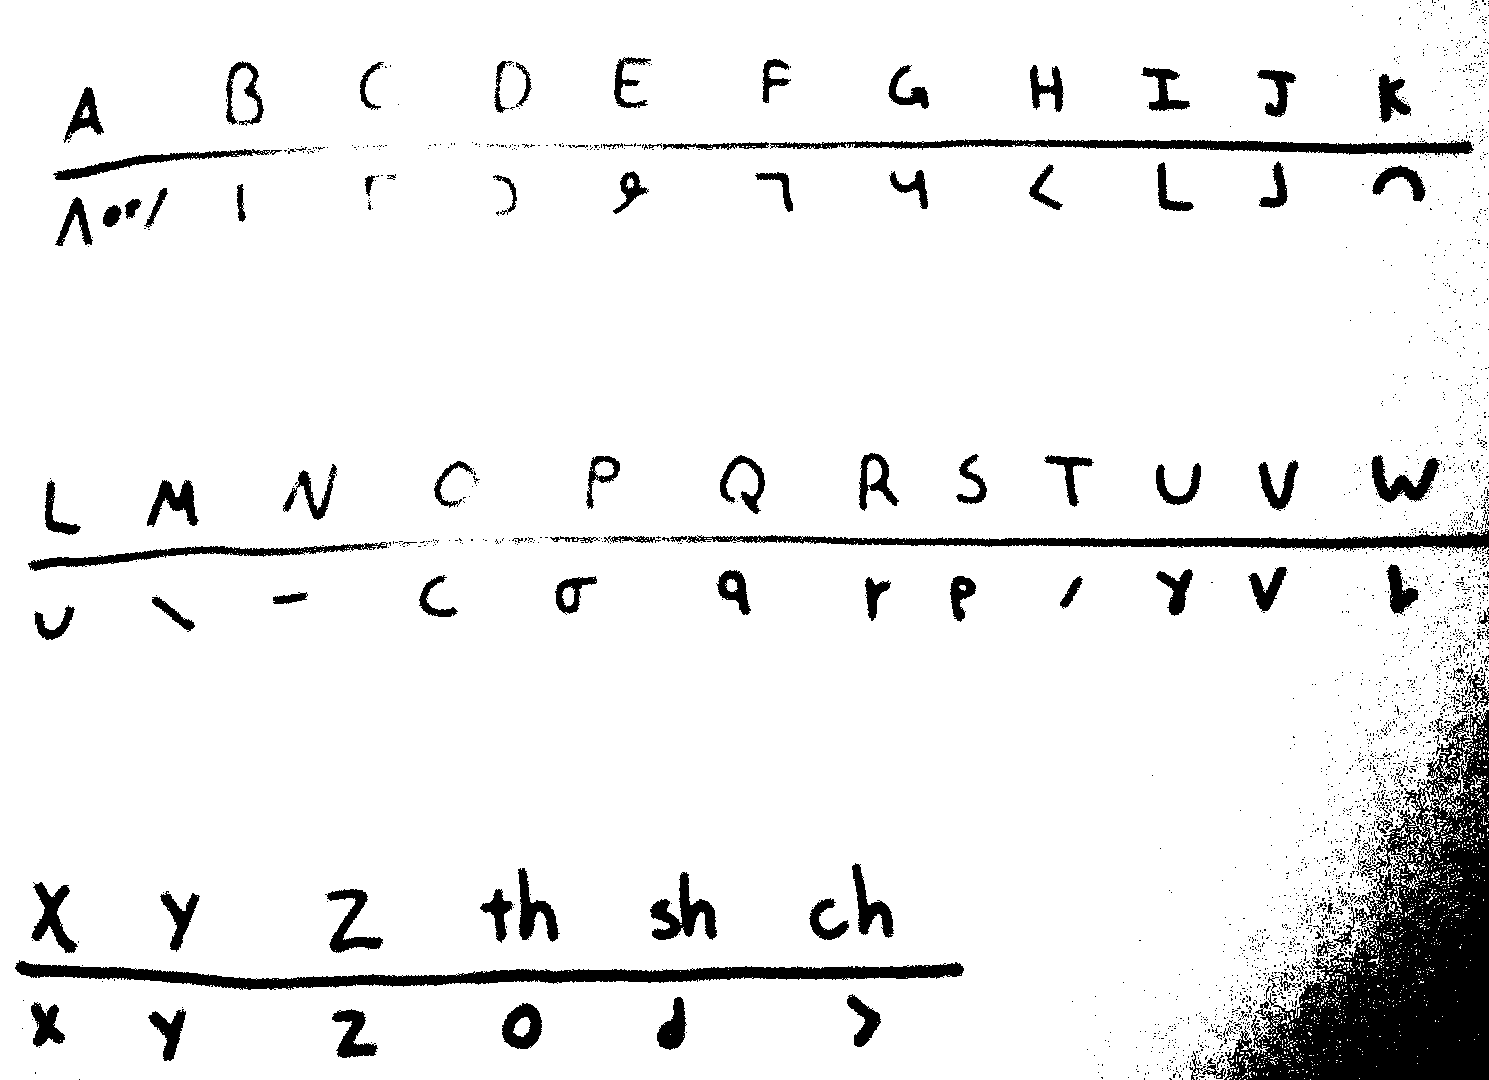 A B C D E F G H I J K
Λ or / ı ┌ ɔ 𝓮 ┐ Ч < L ┘ ∩
L M N O P Q R S T U V W
∪ \ - c σ q r p / γ v Ⱶ
X Y Z th sh ch
x y z o d >